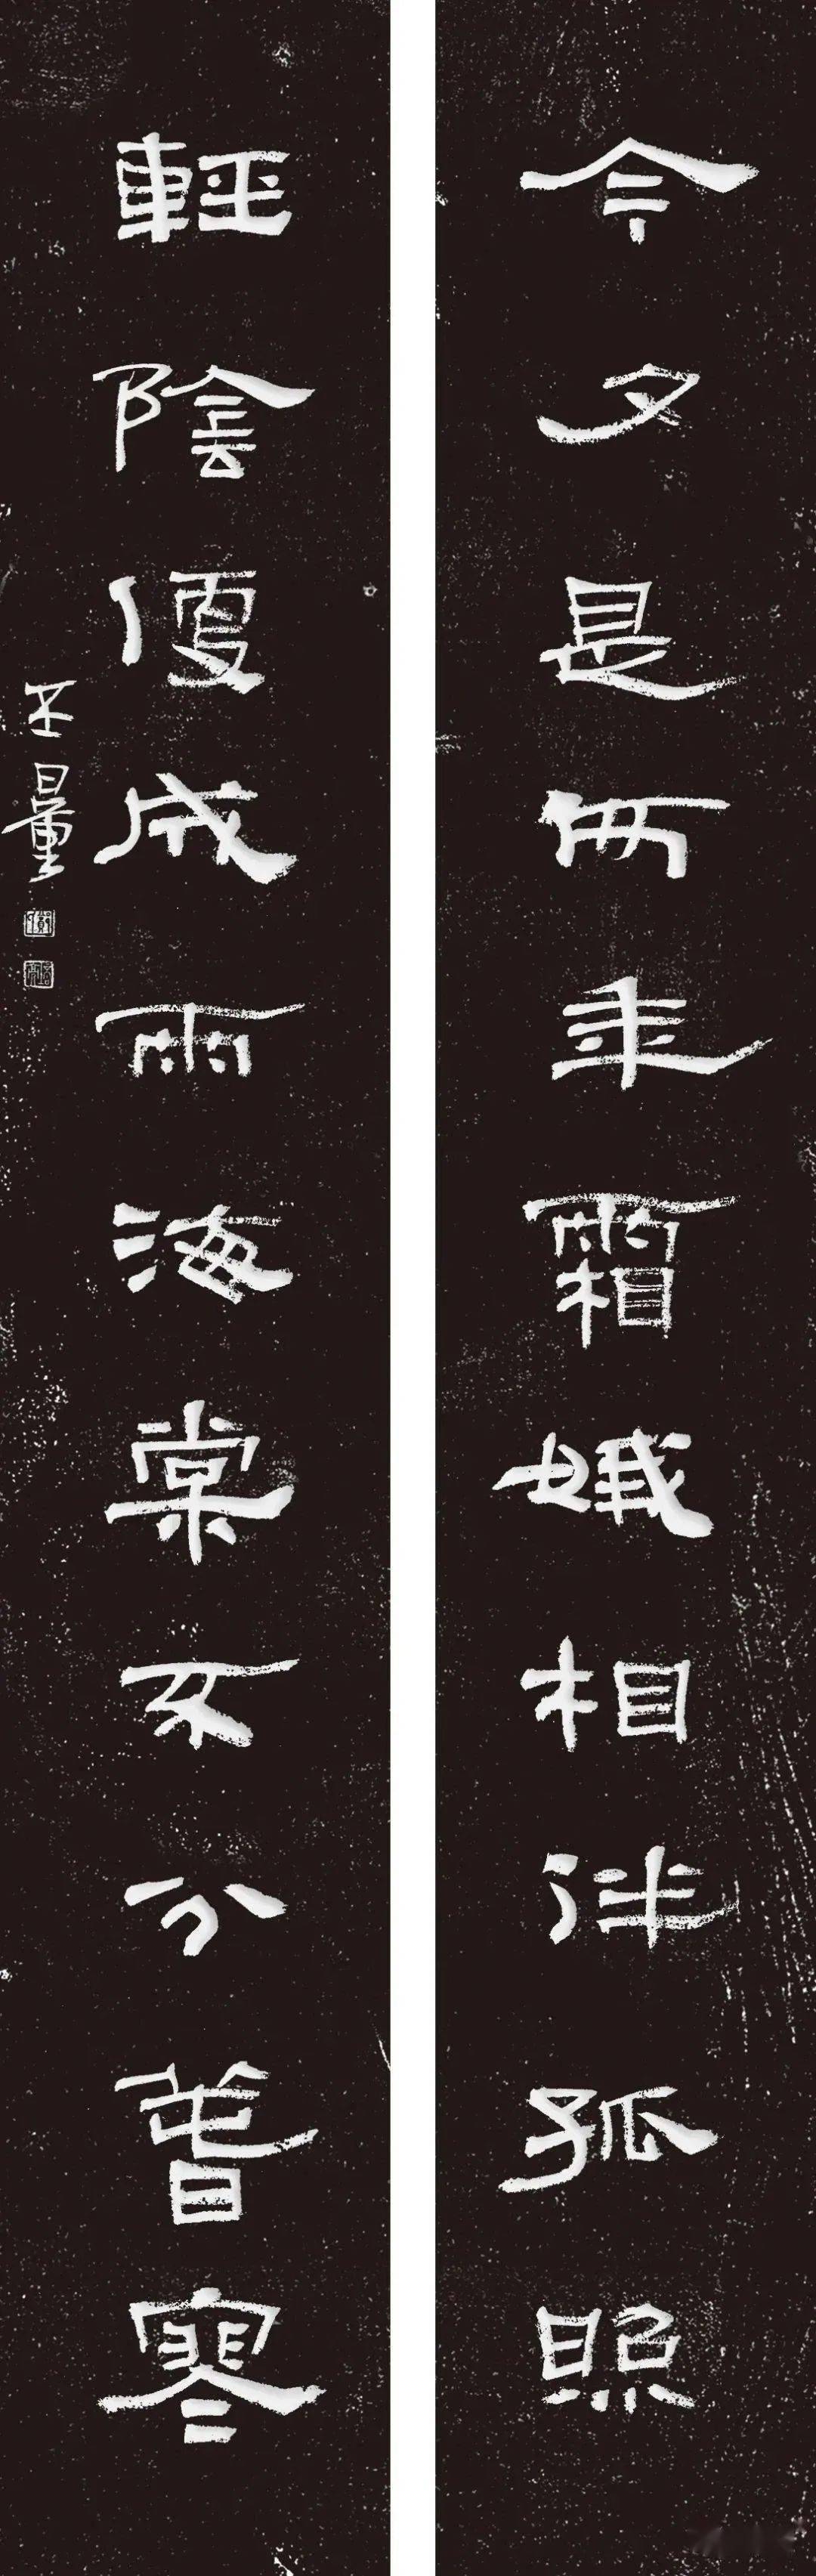 今夕是何年霜娥相伴孤照
輕陰便成雨海棠不分春寒
王量